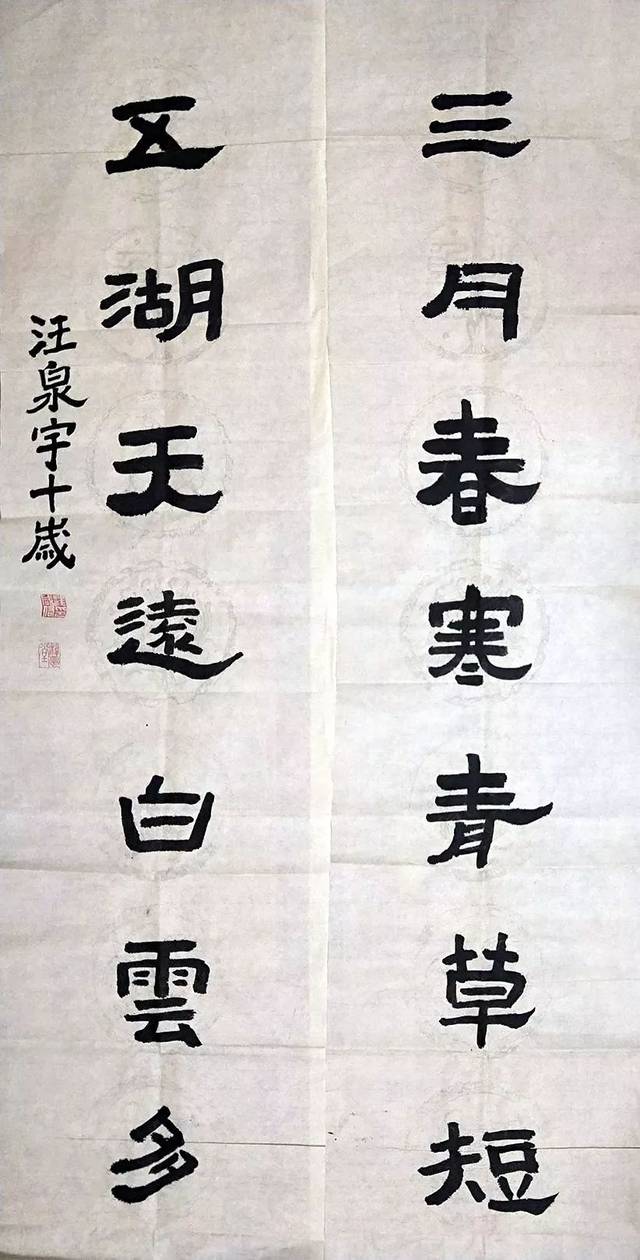 三月春寒青草短
五湖天遠白雲多
汪泉宇十歲